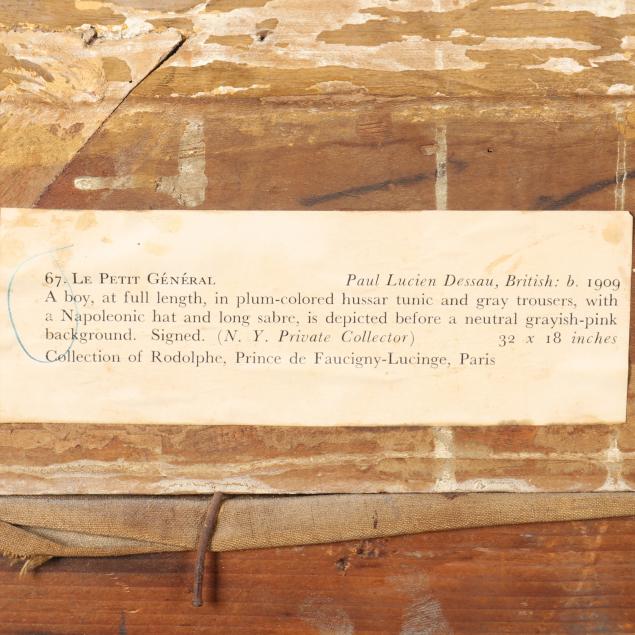 67. LE PETIT GÉNÉRAL Paul Lucien Dessau, British: b. 1909
A boy, at full length, in plum-colored hussar tunic and gray trousers, with
a Napoleonic hat and long sabre, is depicted before a neutral grayish-pink
background. Signed. (N. Y. Private Collector) 32 x 18 inches
Collection of Rodolphe, Prince de Faucigny-Lucinge, Paris